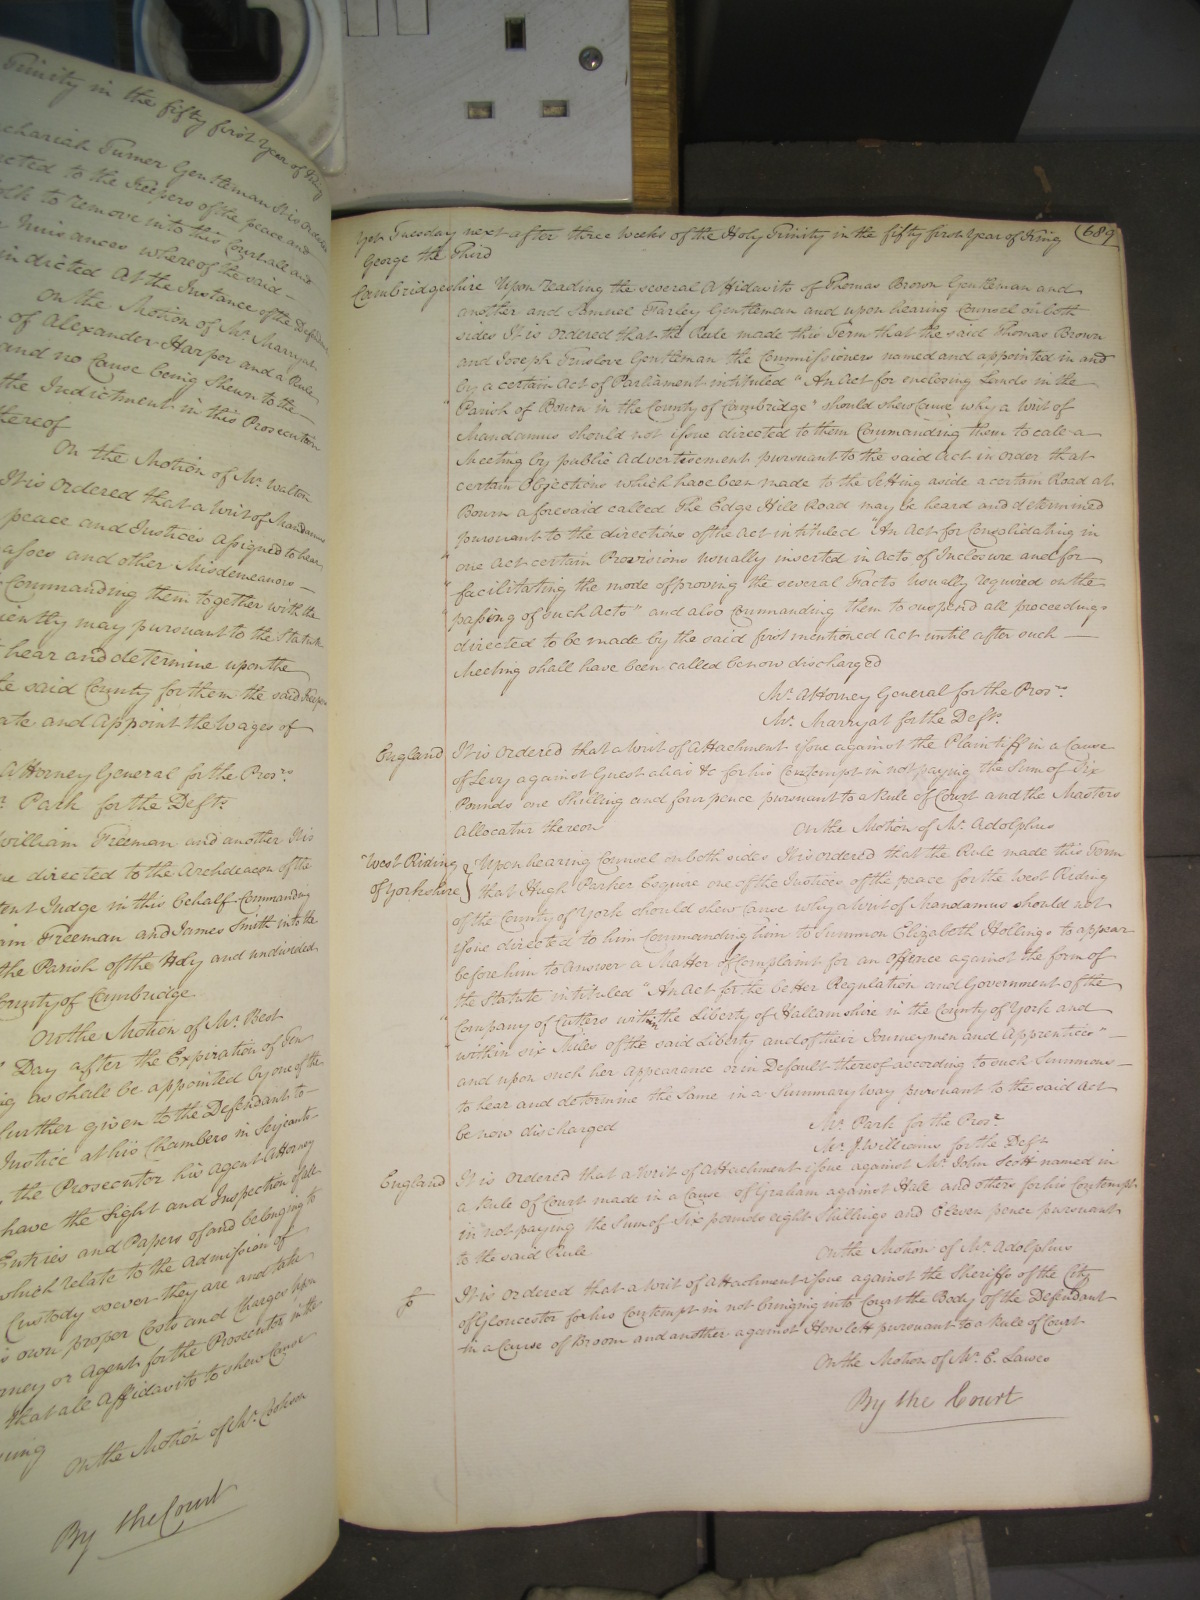 Trinity in the fifty first Year of King
chariah Turner Gentleman It is Ordered
rected to the Keepers of the peace and
olk to remove into this Court all and
Nuisances whereof the said
indicted At the Instance of the Defendant
On the Motion of Mr. Marryat
of Alexander Harper and a Rule
and no Cause being Shewn to the
the Indictment in this Prosecution
thereof
On the Motion of Mr. Walton
It is ordered that a Writ of Mandamus
peace and Justices assigned to hear
asses and other Misdemeanors
Commanding them together with the
iently may pursuant to the Statute
hear and determine upon the
he said County for them the said Keepers
ate and Appoint the Wages of
Attorney General for the Prosr.
Park for the Deft.
William Freeman and another It is
ue directed to the Archdeacon of the
tent Judge in this behalf Commanding
iam Freeman and James Smith into the
the Parish of the Holy and undivided
County of Cambridge
On the Motion of Mr. Best
Day after the Expiration of Ten
ng as shall be appointed by one of the
further given to the Defendant to
Justice at his Chambers in Serjeants
the Prosecutor his Agent Attorney
have the Sight and Inspection of all
Entries and Papers of and belonging to
which relate to the Admission of
Custody soever they are and take
s own proper Costs and Charges upon
rney or Agent for the Prosecutor in the
that all Affidavits to shew Cause
ing
On the Motion of Mr.
By the Court
Yet Tuesday next after three Weeks of the Holy Trinity in the fifty first Year of King 689
George the Third
Cambridgeshire Upon reading the several Affidavits of Thomas Brown Gentleman and
another and Samuel Farley Gentleman and upon hearing Counsel on both
sides It is ordered that the Rule made this Term that the said Thomas Brown
and Joseph Truslove Gentleman the Commissioners named and appointed in and
by a certain Act of Parliament intituled "An Act for enclosing Lands in the
"Parish of Bourn in the County of Cambridge" should shew Cause why a Writ of
Mandamus should not issue directed to them Commanding them to call a
Meeting by public Advertisement pursuant to the said Act in order that
certain Objections which have been made to the Setting aside a certain Road at
Bourn aforesaid called The Edge Hill Road may be heard and determined
pursuant to the directions of the Act intituled "An Act for Consolidating in
"one Act certain Provisions usually inserted in Acts of Inclosure and for
"facilitating the mode of proving the several Facts usually required on the
"passing of such Acts" and also commanding them to suspend all proceedings
directed to be made by the said first mentioned Act until after such
Meeting shall have been called be now discharged
Mr. Attorney General for the Prosr.
Mr. Marryat for the Deft.
England It is Ordered that a Writ of Attachment issue against the Plaintiff in a Cause
of Levy against Guest alias &c for his Contempt in not paying the Sum of Six
Pounds one Shilling and four pence pursuant to a Rule of Court and the Masters
Allocatur thereon On the Motion of Mr. Adolphus
West Riding } Upon hearing Counsel on both sides It is ordered that the Rule made this Term
of Yorkshire } that Hugh Parker Esquire one of the Justices of the peace for the West Riding
of the County of York should shew Cause why a Writ of Mandamus should not
issue directed to him Commanding him to Summon Elizabeth Hollings to appear
before him to Answer a Matter of Complaint for an Offence against the form of
the Statute intituled "An Act for the better Regulation and Government of the
"Company of Cutlers within the Liberty of Hallamshire in the County of York and
"within six Miles of the said Liberty and of their Journeymen and Apprentices"
and upon such her Appearance or in Default thereof according to such Summons
to hear and determine the Same in a Summary way pursuant to the said Act
be now discharged Mr. Park for the Prosr.
Mr. J. Williams for the Deft
England It is Ordered that a Writ of Attachment issue against Mr. John Scott named in
a Rule of Court made in a Cause of Graham against Hale and others for his Contempt
in not paying the Sum of Six pounds eight Shillings and Eleven pence pursuant
to the said Rule On the Motion of Mr. Adolphus
It is Ordered that a Writ of Attachment issue against the Sheriffs of the City
of Gloucester for his Contempt in not bringing into Court the Body of the Defendant
in a Cause of Broom and another against Howlett pursuant to a Rule of Court
On the Motion of Mr. E. Lawes
By the Court